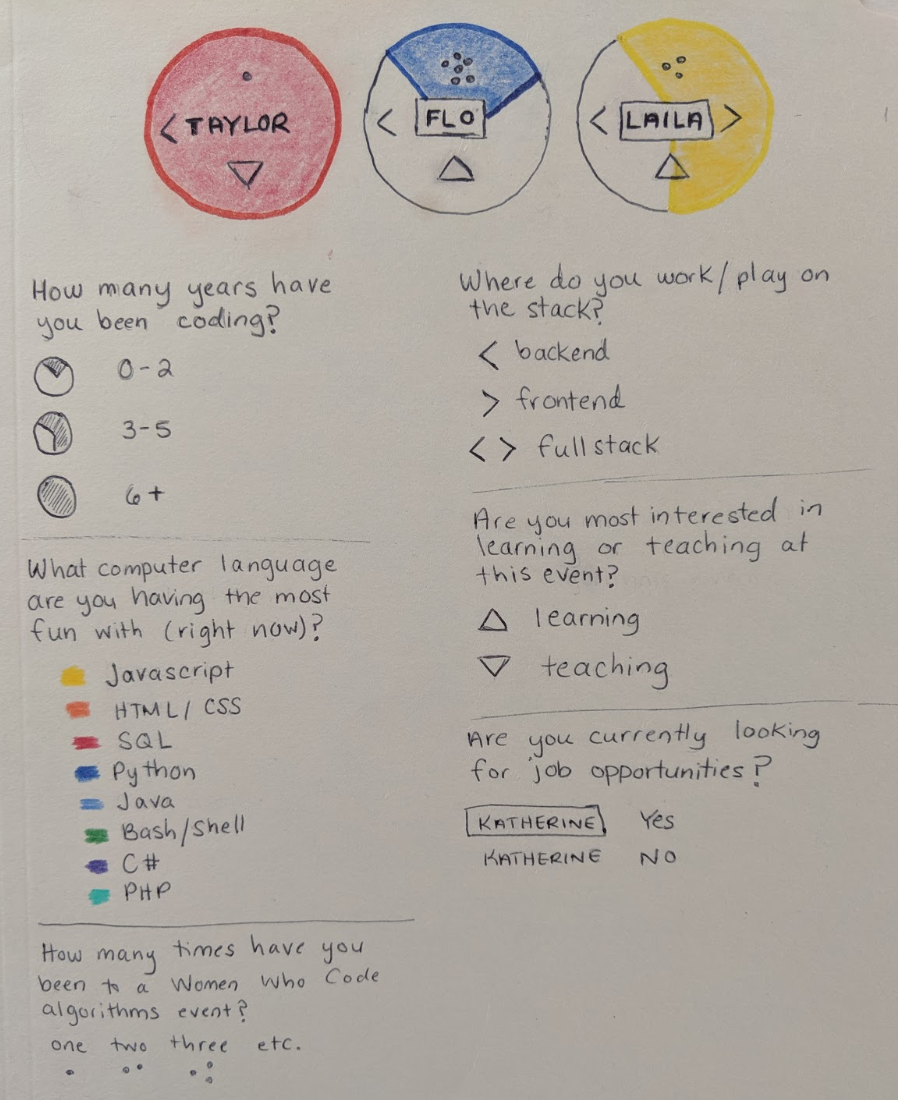 < TAYLOR
< FLO
< LAILA >
How many years have
you been coding?
0-2
3-5
6+
What computer language
are you having the most
fun with (right now)?
Javascript
HTML/ CSS
SQL
Python
Java
Bash/Shell
C#
PHP
How many times have you
been to a Women Who Code
algorithms event?
one two three etc.
Where do you work/play on
the stack?
< backend
> frontend
< > full stack
Are you most interested in
learning or teaching at
this event?
△ learning
▽ teaching
Are you currently looking
for job opportunities?
KATHERINE Yes
KATHERINE NO